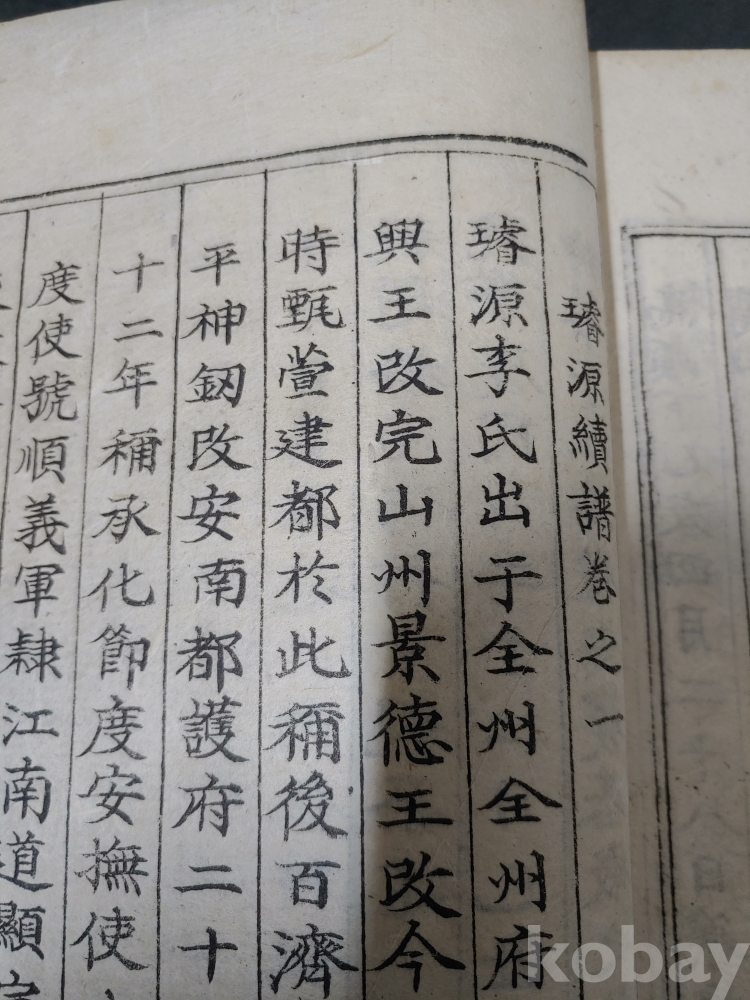 璿源續譜卷之一
璿源李氏出于全州全州府
興王改完山州景德王改今
時甄萱建都於此稱後百濟
平神釰改安南都護府二十
十二年稱承化節度安撫使
度使號順義軍隸江南道顯宗
kobay